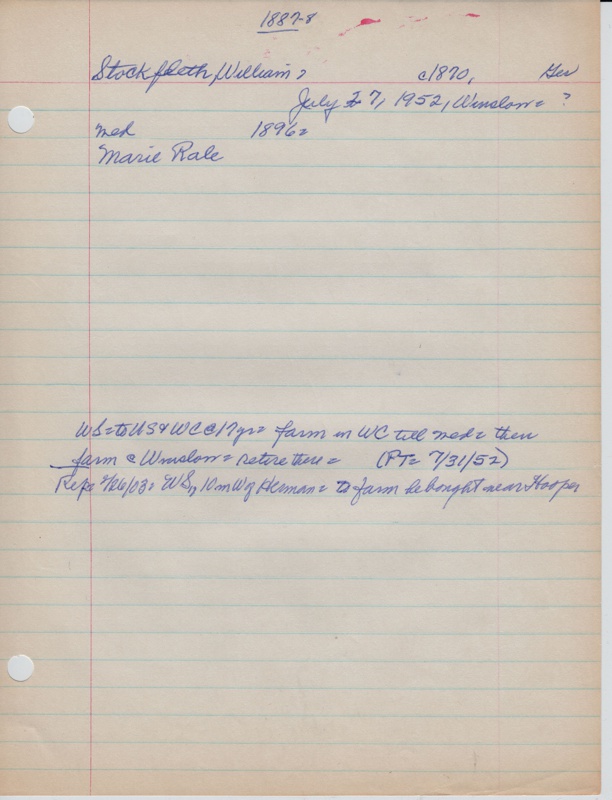 1887-8
Stockfleth, William = c1870, Ger
July 27, 1952, Winslow = ?
med 1896 =
Marie Rale
WS = to US & WC c 17 yr = farm in WC till med = then
farm c Winslow = retire there = (PT = 7/31/52)
Rep = 2/26/03 = WS, 10 m W of Herman = to farm he bought near Hooper